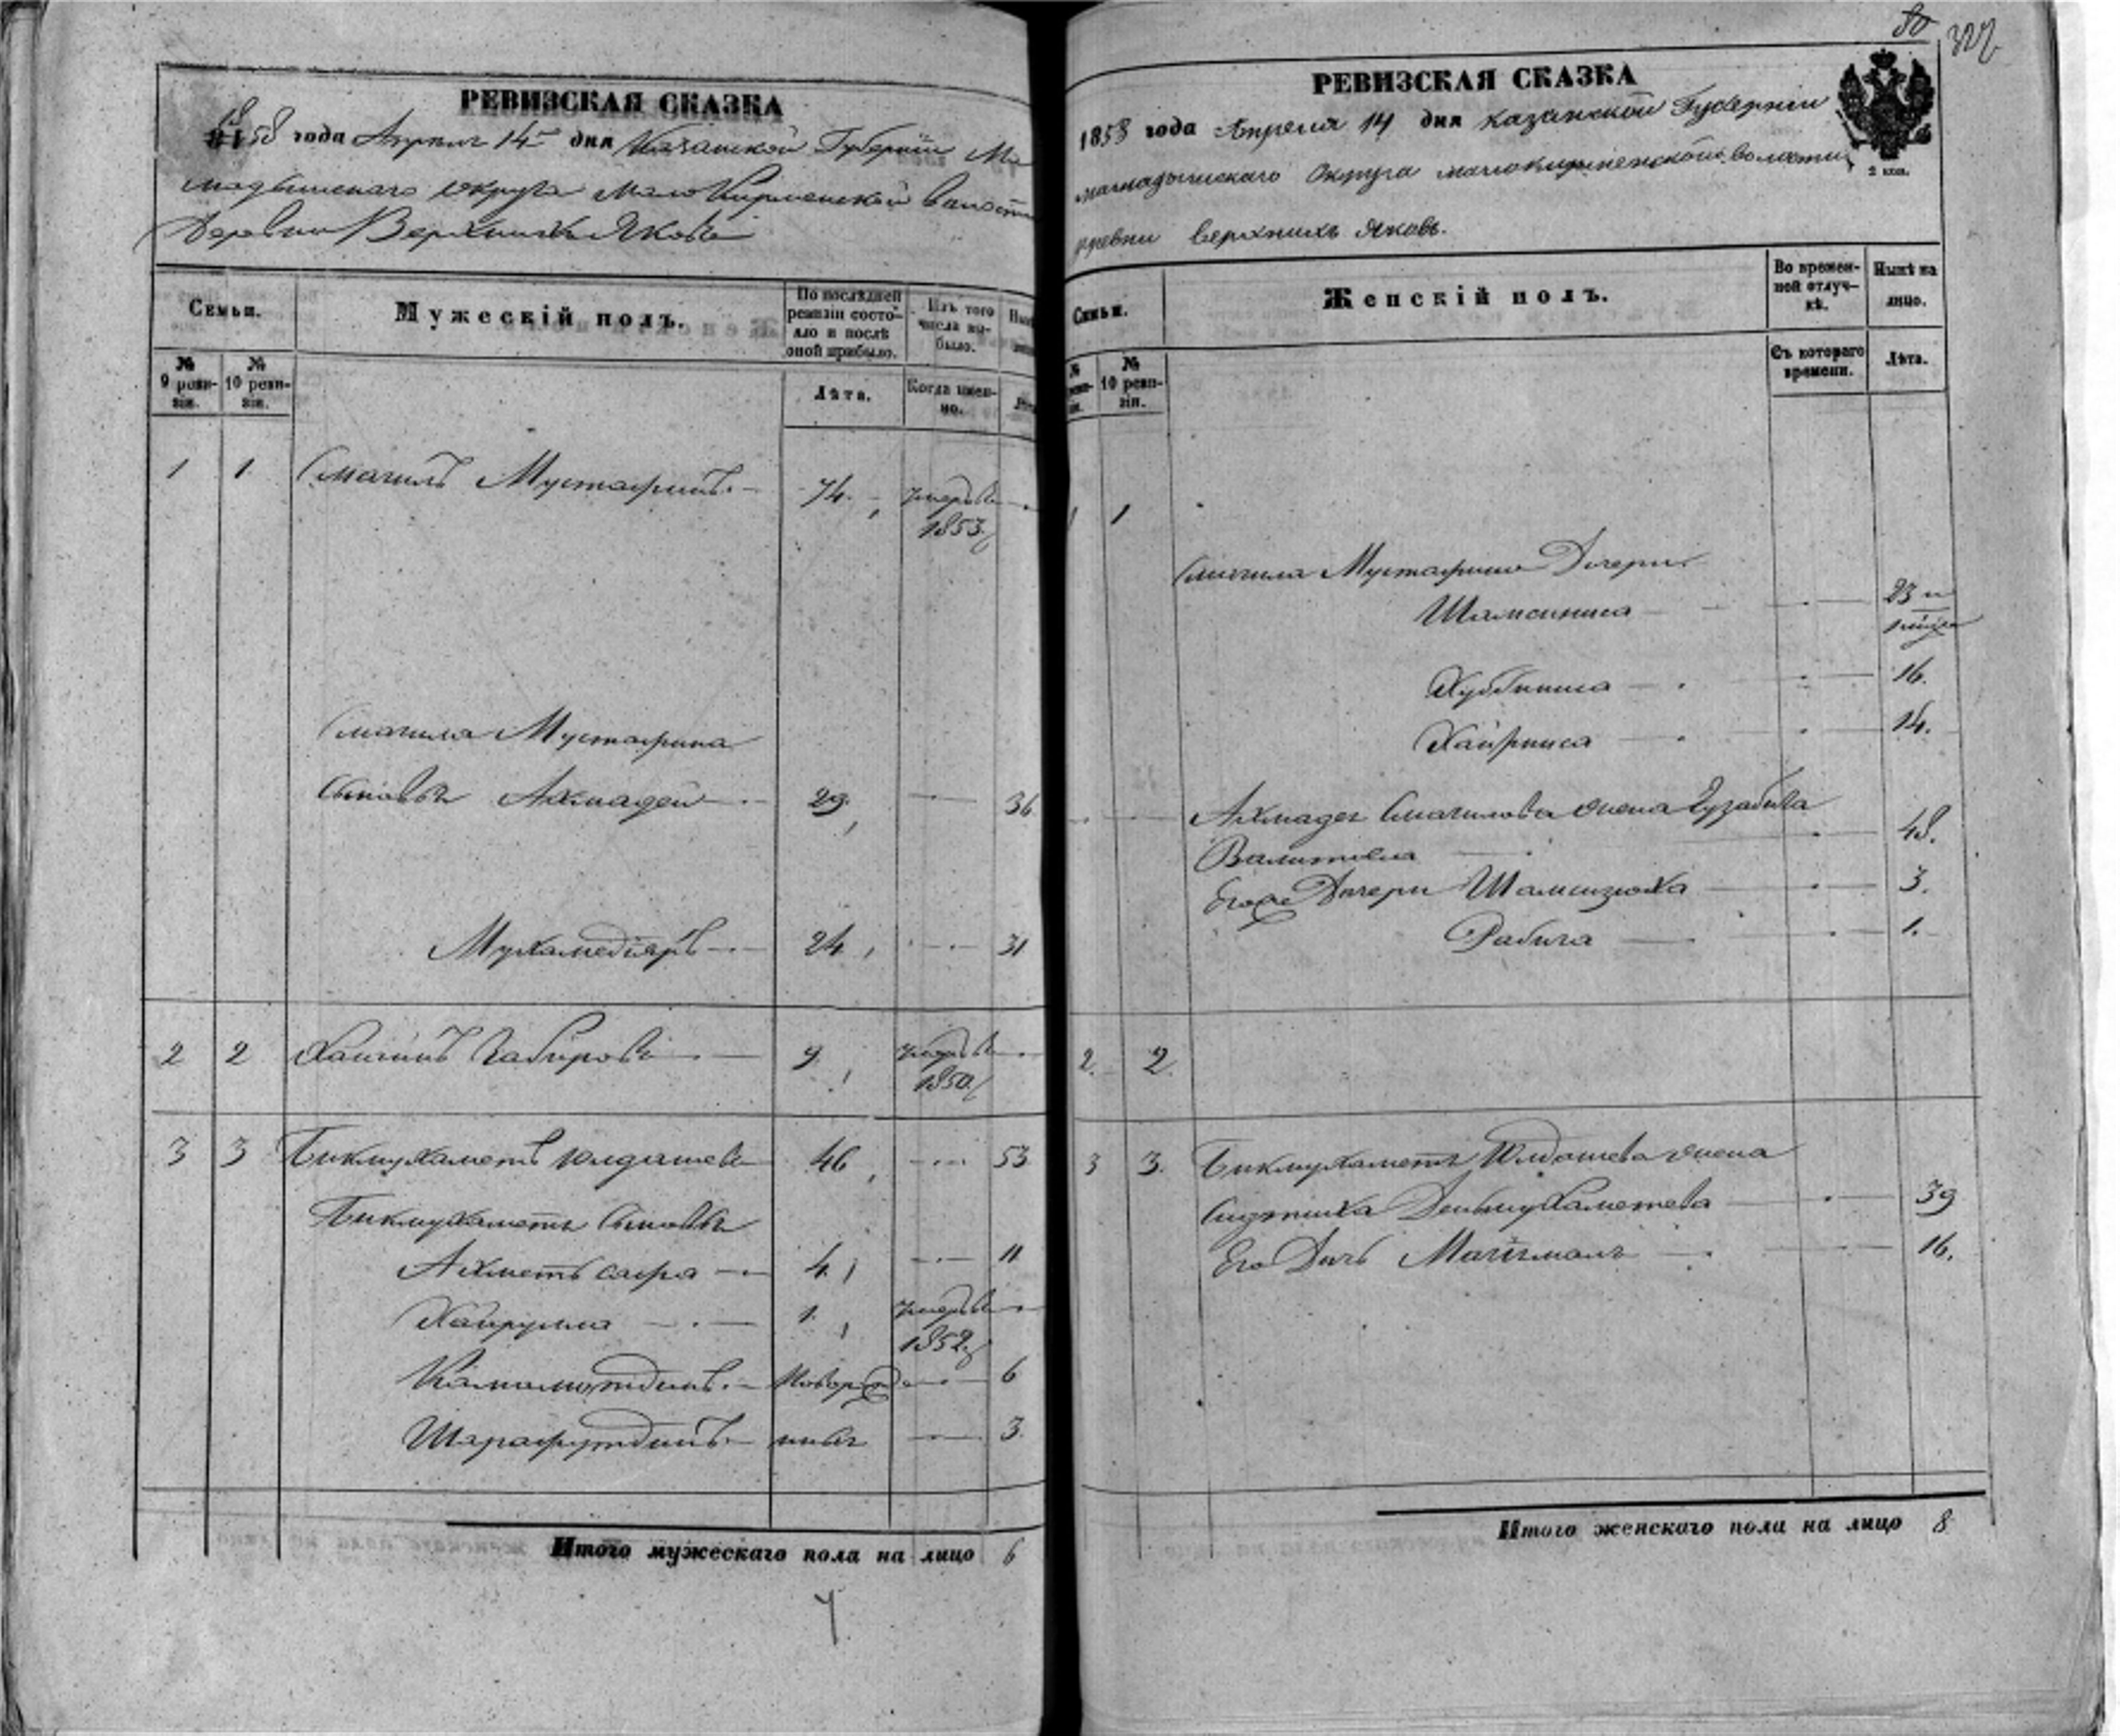 РЕВИЗСКАЯ СКАЗКА
1858 года Апреля 14 дня Казанской Губернiи Ма
мадышскаго округа Мало Кирменской волости
Деревни Верхнихъ Яковъ
Семьи.
Мужескiй полъ.
По послѣдней ревизiи состояло и послѣ оной прибыло.
Изъ того числа выбыло.
№ 9 ревизiи.
№ 10 ревизiи.
Лѣта.
Когда именно.
1 1 Смагилъ Мустафинъ 74. умеръ въ
1853.
Смагила Мустафина
сыновья Ахмадей 29. 36
Мухамедiяръ 24 31
2 2 Хакимъ Габировъ 9. умеръ въ
1850
3 3 Бикмухаметъ Юлдашевъ 46 53
Бикмухамета сыновья
Ахметъ сафа 4 11
Хайрулла 1. умеръ въ
1852
Камалютдинъ Новорож 6
Шарафутдинъ нныя 3.
Итого мужескаго пола на лицо 6
80
322
РЕВИЗСКАЯ СКАЗКА
1858 года Апреля 14 дня Казанской Губернiи
мамадышскаго Округа малокирменской волости
деревни верхнихъ Яковъ.
2 коп.
Семьи.
Женскiй полъ.
Во временной отлучкѣ.
Нынѣ на лицо.
№ 10 ревизiи.
Съ котораго времени.
Лѣта.
1 1
Смагила Мустафина Дочери
Шамсиниса 23 и
Хуббиниса 16.
Хайрниса 14.
Ахмадея Смагилова жена Гузабига
Валитова 48.
Его же Дочери Шамсизюха 3.
Рабига 1.
2. 2.
3 3. Бикмухамета Юлдашева жена
Сидтика Деньмухаметева 39
Его Дочь 16.
Итого женскаго пола на лицо 8